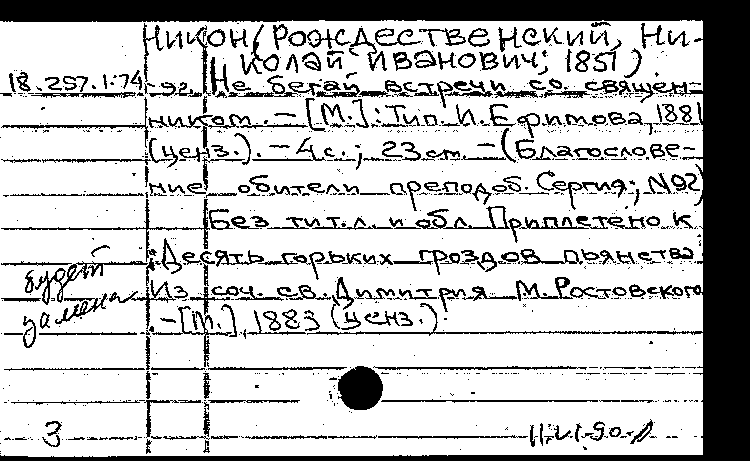 Никон (Рождественский, Ни-
колай Иванович; 1851)
18.257.1.74-92. Не бегай встречи со священ-
ником. — [М.]: Тип. И. Ефимова, 1881
(ценз.). — 4 с.; 23 см. — (Благослове-
ние обители преподоб. Сергия; N92)
Без тит.л. и обл. Приплетено к
: Десять горьких гроздов пьянства.
будет Из соч. св. Димитрия М. Ростовского
замена . — [М.], 1883 (ценз.).
3 11.VI.90.